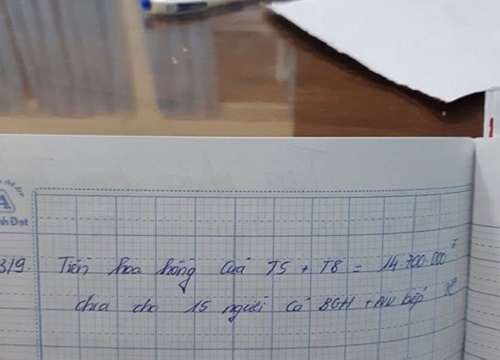 nh Đạt
3/9. Tiền hoa hồng Của T5 + T8 = 14.700.000đ
chia cho 15 người cả BGH + NV bếp